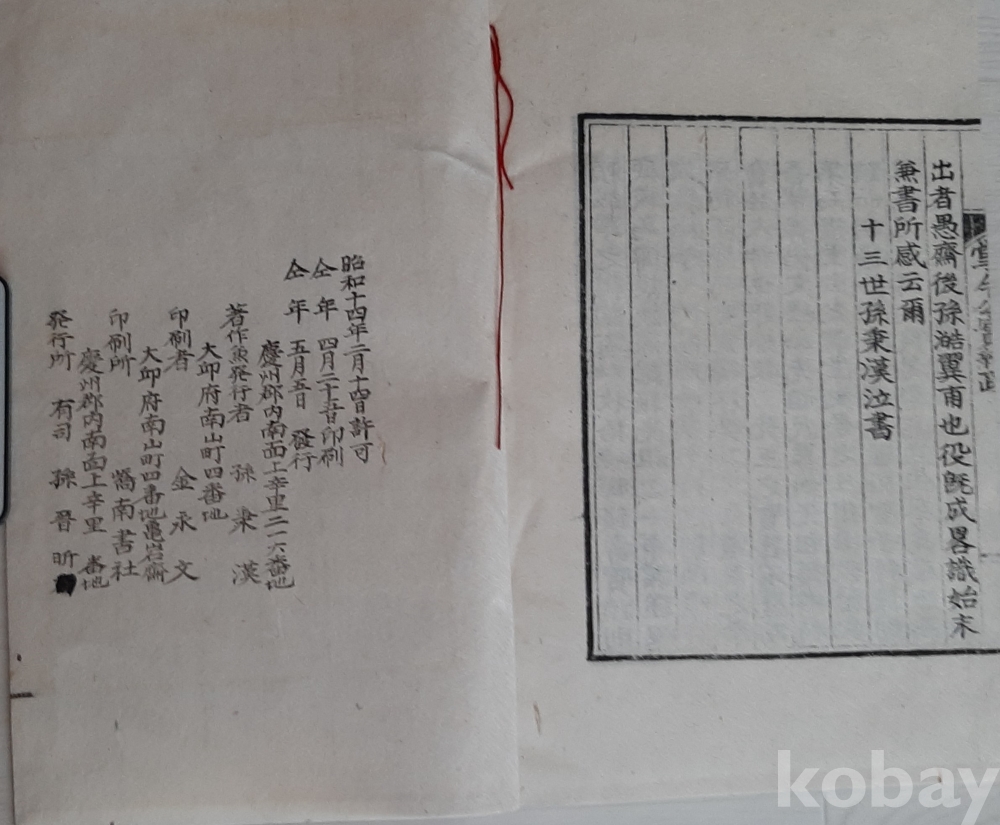 出者愚齋後孫澔翼甫也役旣成畧識始末
兼書所感云爾
十三世孫秉漢泣書
昭和十四年二月十四日許可
仝年 四月二十五日印刷
仝年 五月五日 發行
慶州郡內南面上辛里二一六番地
著作兼發行者 孫秉漢
大邱府南山町四番地
印刷者 金永文
大邱府南山町四番地龜岩齋
印刷所 嶠南書社
慶州郡內南面上辛里 番地
發行所 有司 孫晉昕
kobay